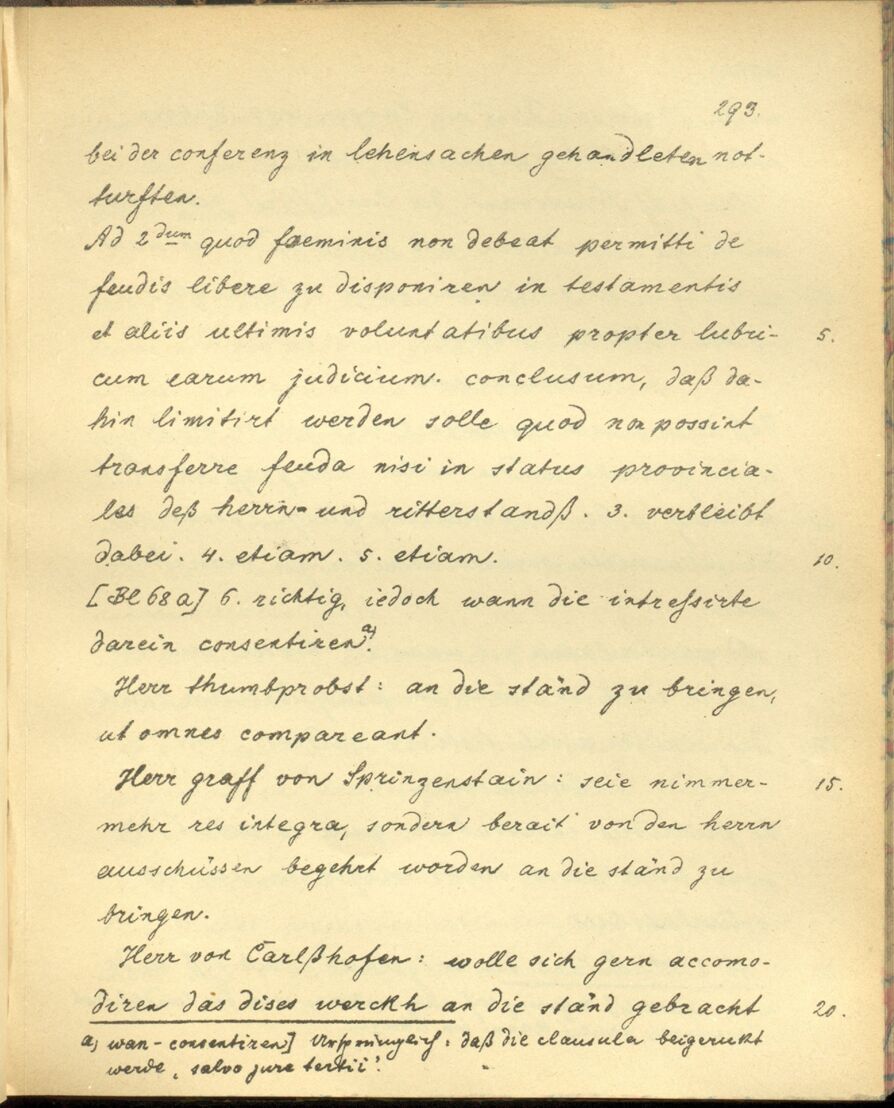 293.
bei der conferenz in lehensachen gehandleten not-
turften.
Ad 2dum quod faeminis non debeat permitti de
feudis libere zu disponiren in testamentis
et aliis ultimis voluntatibus propter lubri- 5.
cum earum judicium. conclusum, daß da-
hin limitirt werden solle quod non possint
transferre feuda nisi in status provincia-
les deß herrn- und ritterstandß. 3. verbleibt
dabei. 4. etiam. 5. etiam. 10.
[Bl 68a] 6. richtig, iedoch wann die intressirte
darein consentiren a).
Herr thumbprobst: an die ständ zu bringen,
ut omnes compareant.
Herr graff von Sprinzenstain: seie nimmer- 15.
mehr res integra, sondern berait von den herrn
ausschüssen begehrt worden an die ständ zu
bringen.
Herr von Carlßhofen: wolle sich gern accomo-
diren das dises werckh an die ständ gebracht 20.
a) wan - consentiren] Ursprünglich: daß die clausula beigeruckt
werde, 'salvo jure tertii'.